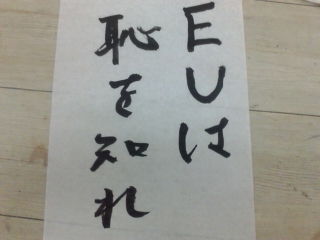 EUは
恥を知れ